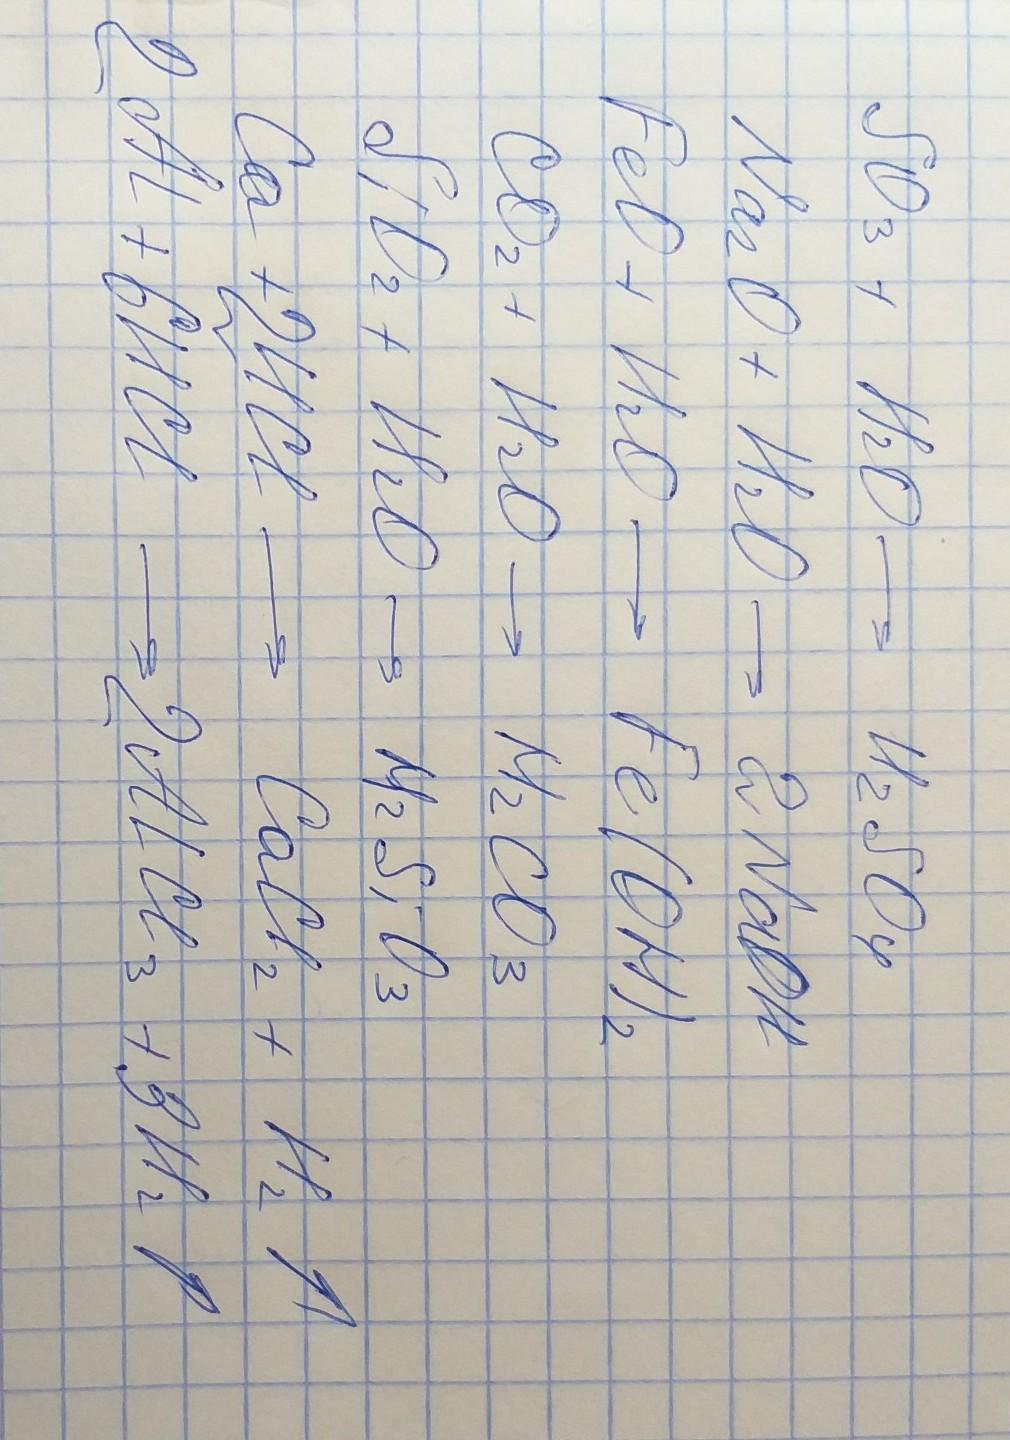 SO₃ + H₂O → H₂SO₄
Na₂O + H₂O → 2NaOH
FeO + H₂O → Fe(OH)₂
CO₂ + H₂O → H₂CO₃
SiO₂ + H₂O → H₂SiO₃
Ca + 2HCl → CaCl₂ + H₂ ↑
2Al + 6HCl → 2AlCl₃ + 3H₂ ↑